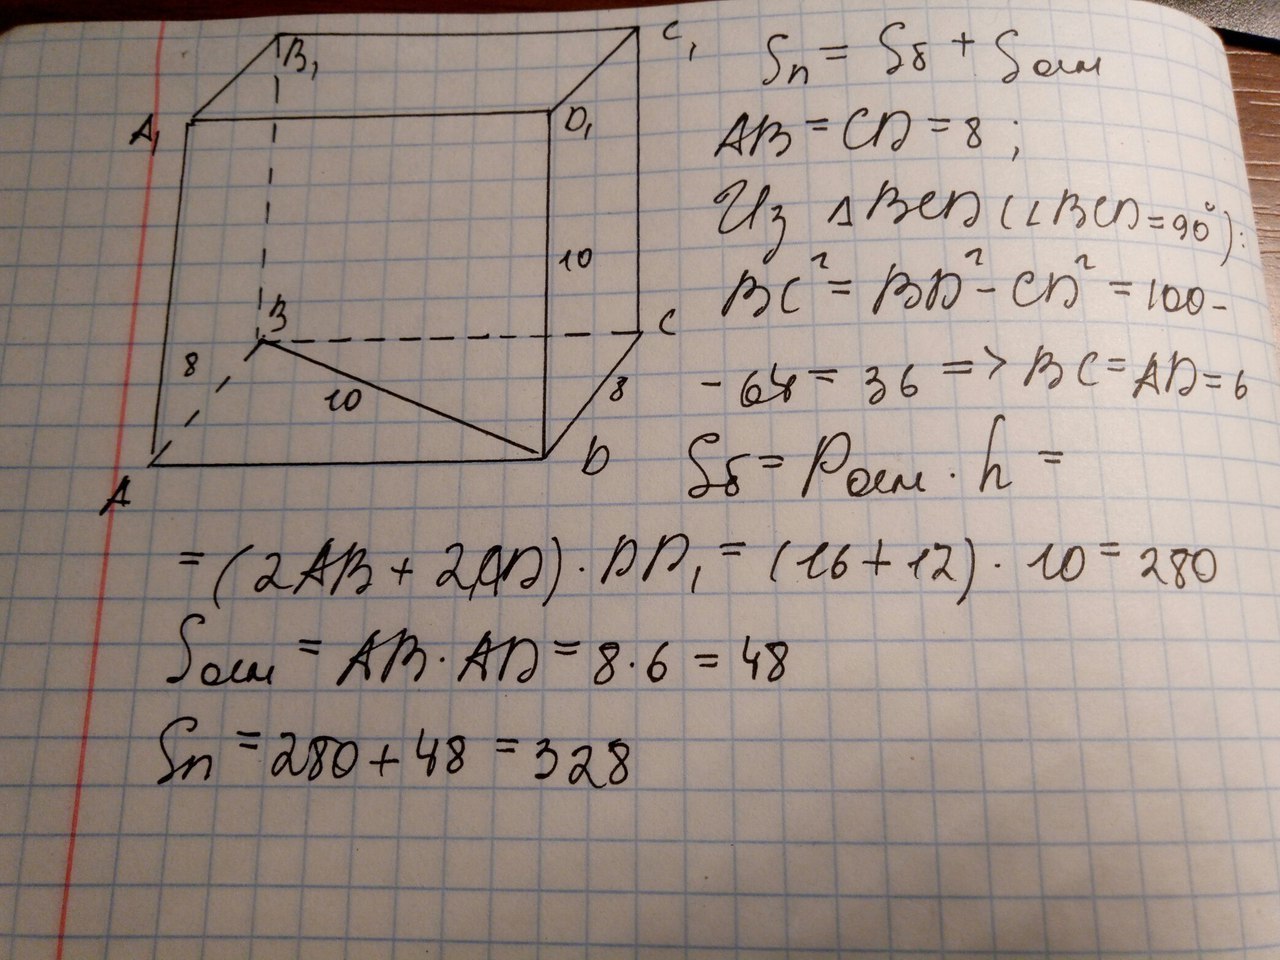 B₁
C₁
A₁
D₁
10
B
C
8
10
8
D
A
Sп = Sб + Sосн
AB = CD = 8 ;
Из △BCD (∠BCD = 90°):
BC² = BD² - CD² = 100 -
- 64 = 36 => BC = AD = 6
Sб = Pосн · h =
= (2AB + 2AD) · DD₁ = (16 + 12) · 10 = 280
Sосн = AB · AD = 8 · 6 = 48
Sп = 280 + 48 = 328